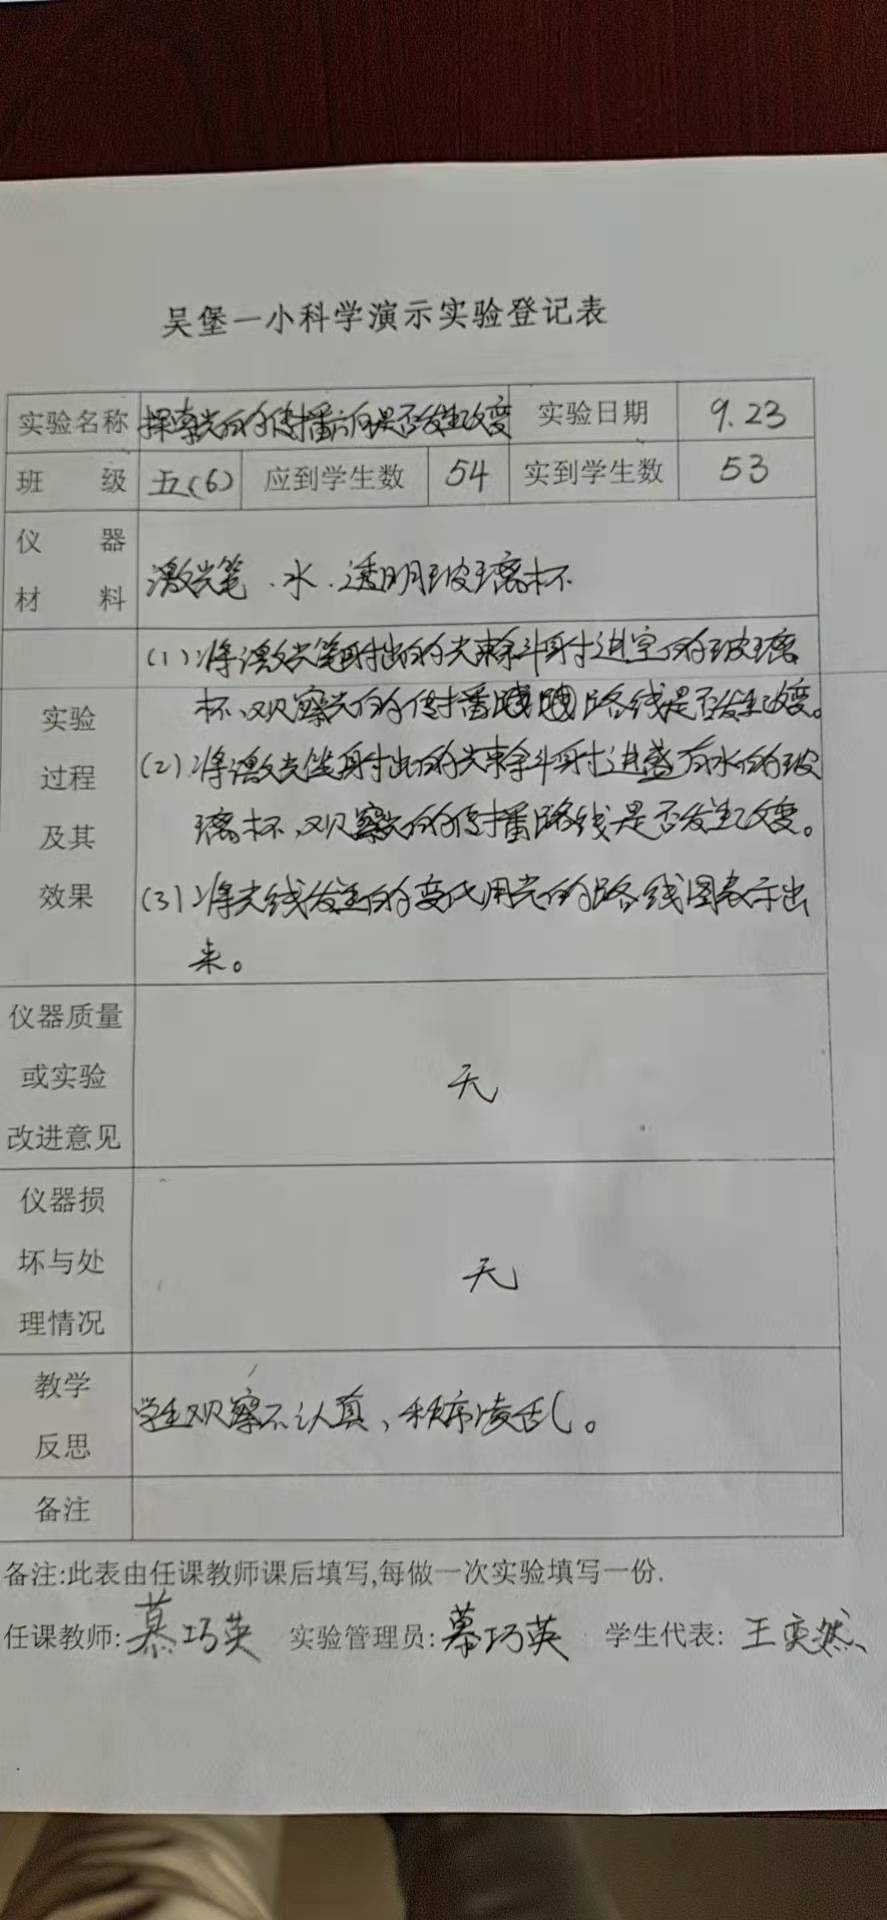 吴堡一小科学演示实验登记表
实验名称 探索光的传播方向是否发生改变 实验日期 9.23
班 级 五(6) 应到学生数 54 实到学生数 53
仪 器
材 料
激光笔、水、透明玻璃杯
实验
过程
及其
效果
(1)将激光笔射出的光束斜射进空的玻璃
杯,观察光的传播路线是否发生改变。
(2)将激光笔射出的光束斜射进盛有水的玻
璃杯,观察光的传播路线是否发生改变。
(3)将光线发生的变化用光的路线图表示出
来。
仪器质量
或实验
改进意见
无
仪器损
坏与处
理情况
无
教学
反思
学生观察不认真、秩序凌乱。
备注
备注:此表由任课教师课后填写,每做一次实验填写一份.
任课教师:慕巧英 实验管理员:慕巧英 学生代表: 王奕然